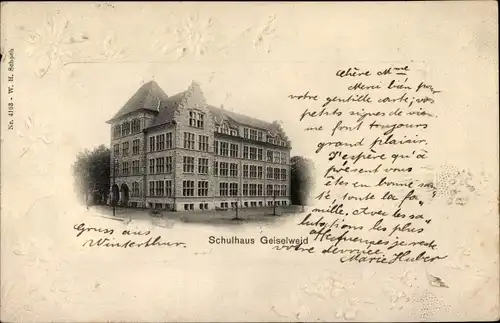 No. 4103 - W. H. Schoch
Chère Mme
Merci bien pr
votre gentille carte, vos
petits signes de vie
me font toujours
grand plaisir.
J'espère qu'à
présent vous
êtes en bonne san-
té, toute la fa-
mille. Avec les sa-
lutations les plus
affectueuses je reste
votre dévouée
Marie Huber
Gruss aus
Winterthur.
Schulhaus Geiselweid